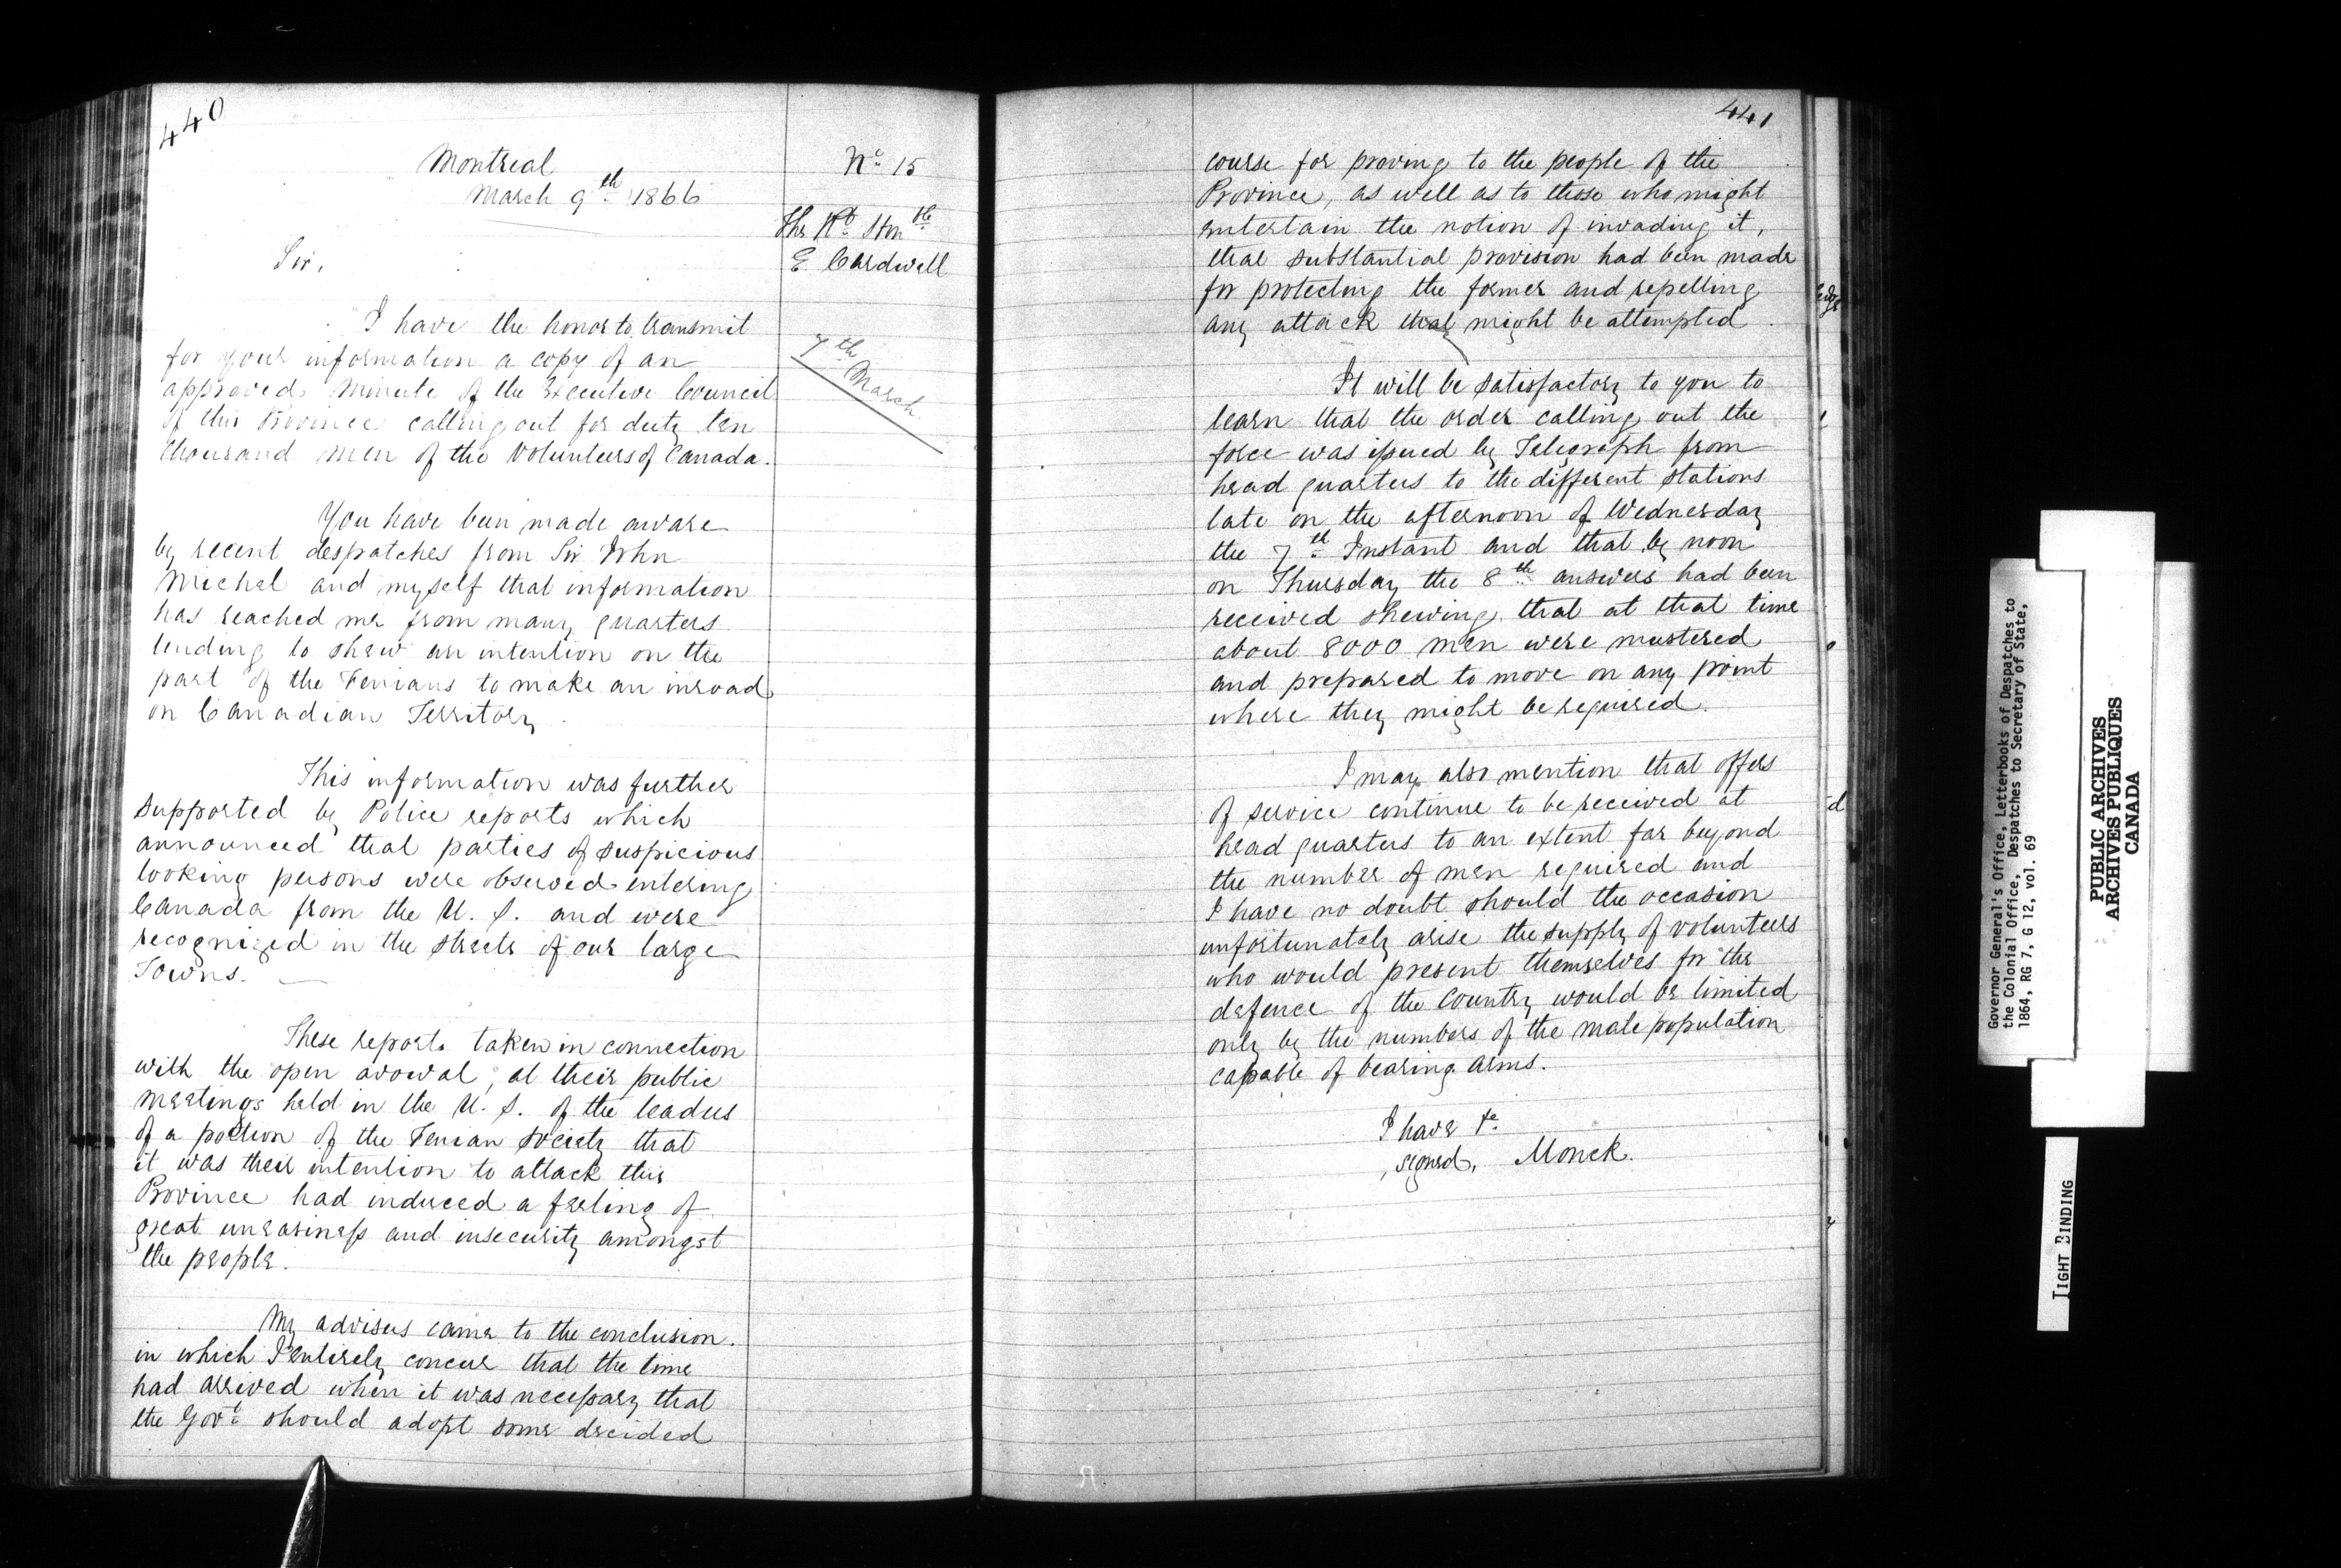 440
Montreal
March 9th 1866
No 15
The Rt Honble
E. Cardwell
Sir,
I have the honor to transmit
for your information a copy of an
approved Minute of the Executive Council
of this Province calling out for duty ten
thousand men of the Volunteers of Canada.
7th March
You have been made aware
by recent despatches from Sir John
Michel and myself that information
has reached me from many quarters
tending to shew an intention on the
part of the Fenians to make an inroad
on Canadian Territory.
This information was further
supported by Police reports which
announced that parties of suspicious
looking persons were observed entering
Canada from the U. S. and were
recognized in the streets of our large
Towns.
These reports taken in connection
with the open avowal, at their public
meetings held in the U. S. of the leaders
of a portion of the Fenian Society that
it was their intention to attack this
Province had induced a feeling of
great uneasiness and insecurity amongst
the people.
My advisers came to the conclusion
in which I entirely concur that the time
had arrived when it was necessary that
the Govt should adopt some decided
441
course for proving to the people of the
Province, as well as to those who might
entertain the notion of invading it,
that substantial provision had been made
for protecting the former and repelling
any attack that might be attempted.
It will be satisfactory to you to
learn that the order calling out the
force was issued by Telegraph from
head quarters to the different stations
late on the afternoon of Wednesday
the 7th Instant and that by noon
on Thursday the 8th answers had been
received shewing that at that time
about 8000 men were mustered
and prepared to move on any point
where they might be required.
I may also mention that offers
of service continue to be received at
head quarters to an extent far beyond
the number of men required and
I have no doubt should the occasion
unfortunately arise the supply of volunteers
who would present themselves for the
defence of the Country would be limited
only by the numbers of the male population
capable of bearing arms.
I have &c
signed, Monck.
Governor General's Office, Letterbooks of Despatches to
the Colonial Office, Despatches to Secretary of State,
1864, RG 7, G 12, vol. 69
PUBLIC ARCHIVES
ARCHIVES PUBLIQUES
CANADA
TIGHT BINDING